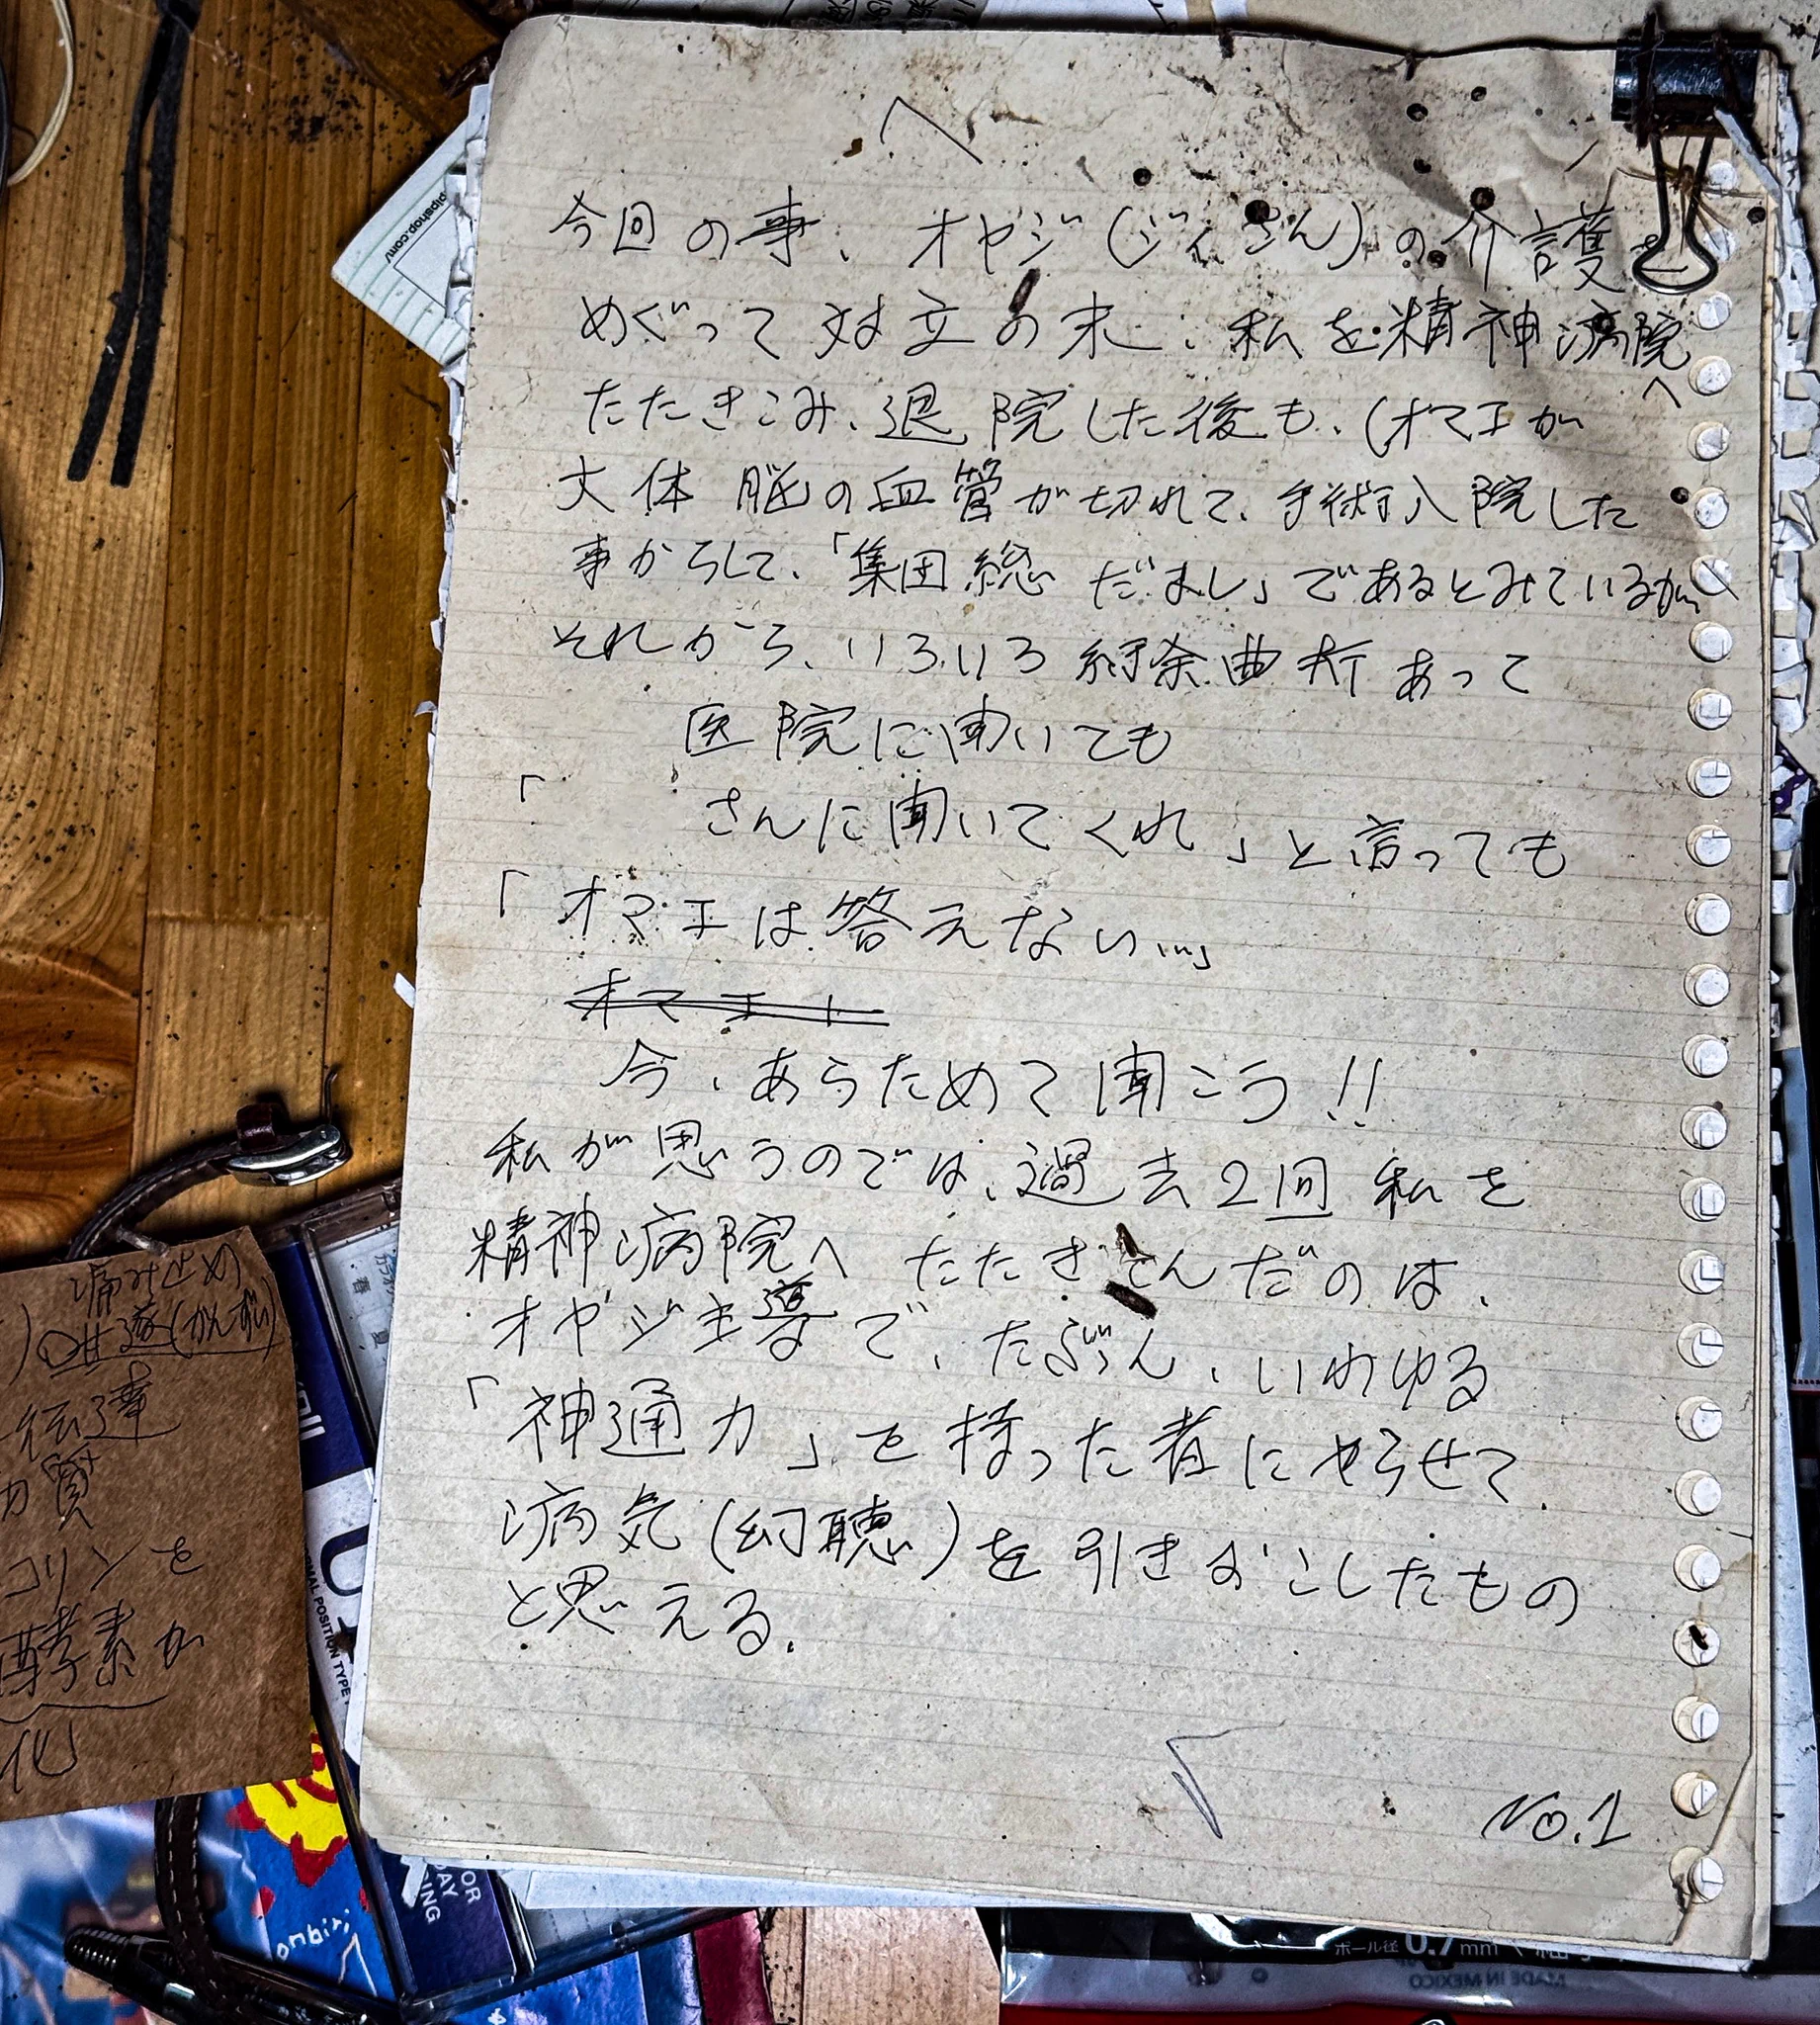 へ
今回の事、オヤジ(ジィさん)の介護を
めぐって対立の末、私を精神病院
へ
たたきこみ、退院した後も、(オマエが
大体脳の血管が切れて、手術入院した
事からして、「集団総だまし」であるとみているが
それから、いろいろ紆余曲折あって
医院に聞いても
「　　さんに聞いてくれ」と言っても
「オマエは答えない…」
オマエ
今、あらためて聞こう!!
私が思うのでは、過去2回私を
精神病院へたたきこんだのは、
オヤジ主導で、たぶん、いわゆる
「神通力」を持った者にやらせて
病気(幻聴)を引きおこしたもの
と思える。
No.1
痛み止め
甘遂(かんずい)
伝達
質
コリンを
酵素が
化
pipshop.com/
NORMAL POSITION TYPE
onbiri
ボール径 0.7mm
MADE IN MEXICO